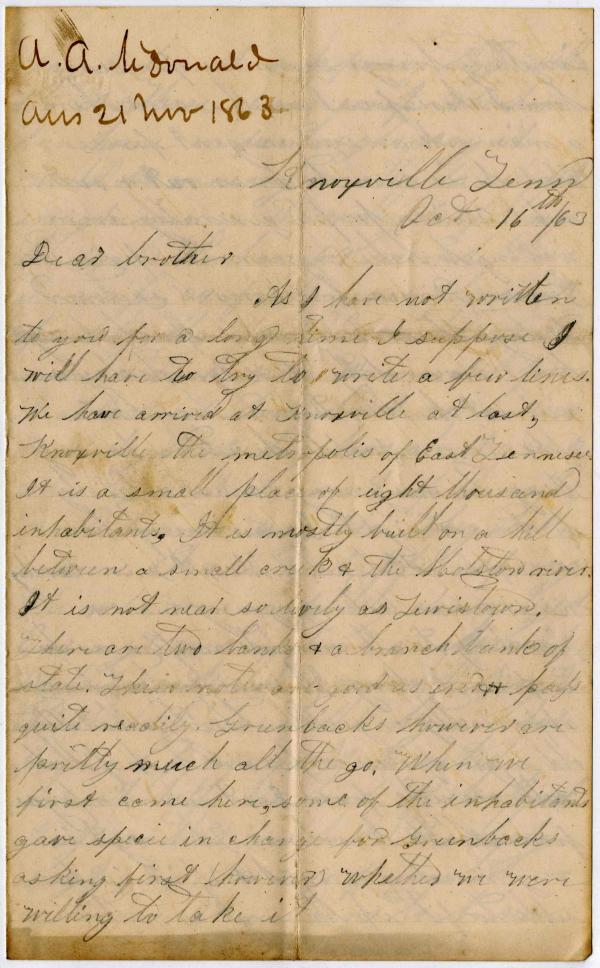 A. A. McDonald
Ans 21 Nov 1863
Knoxville Tenn
Oct. 16th /63
Dear brother
As I have not written
to you for a long time I suppose I
will have to try to write a few lines.
We have arrived at Knoxville at last,
Knoxville the metropolis of East Tennessee.
It is a small place of eight thousand
inhabitants. It is mostly built on a hill
between a small creek & the Holston river.
It is not near so lively as Lewistown.
There are two banks & a branch bank of
state. Their notes are good as ever & pass
quite readily. Greenbacks however are
pretty much all the go. When we
first came here, some of the inhabitants
gave specie in change for Greenbacks
asking first (however) whether we were
willing to take it